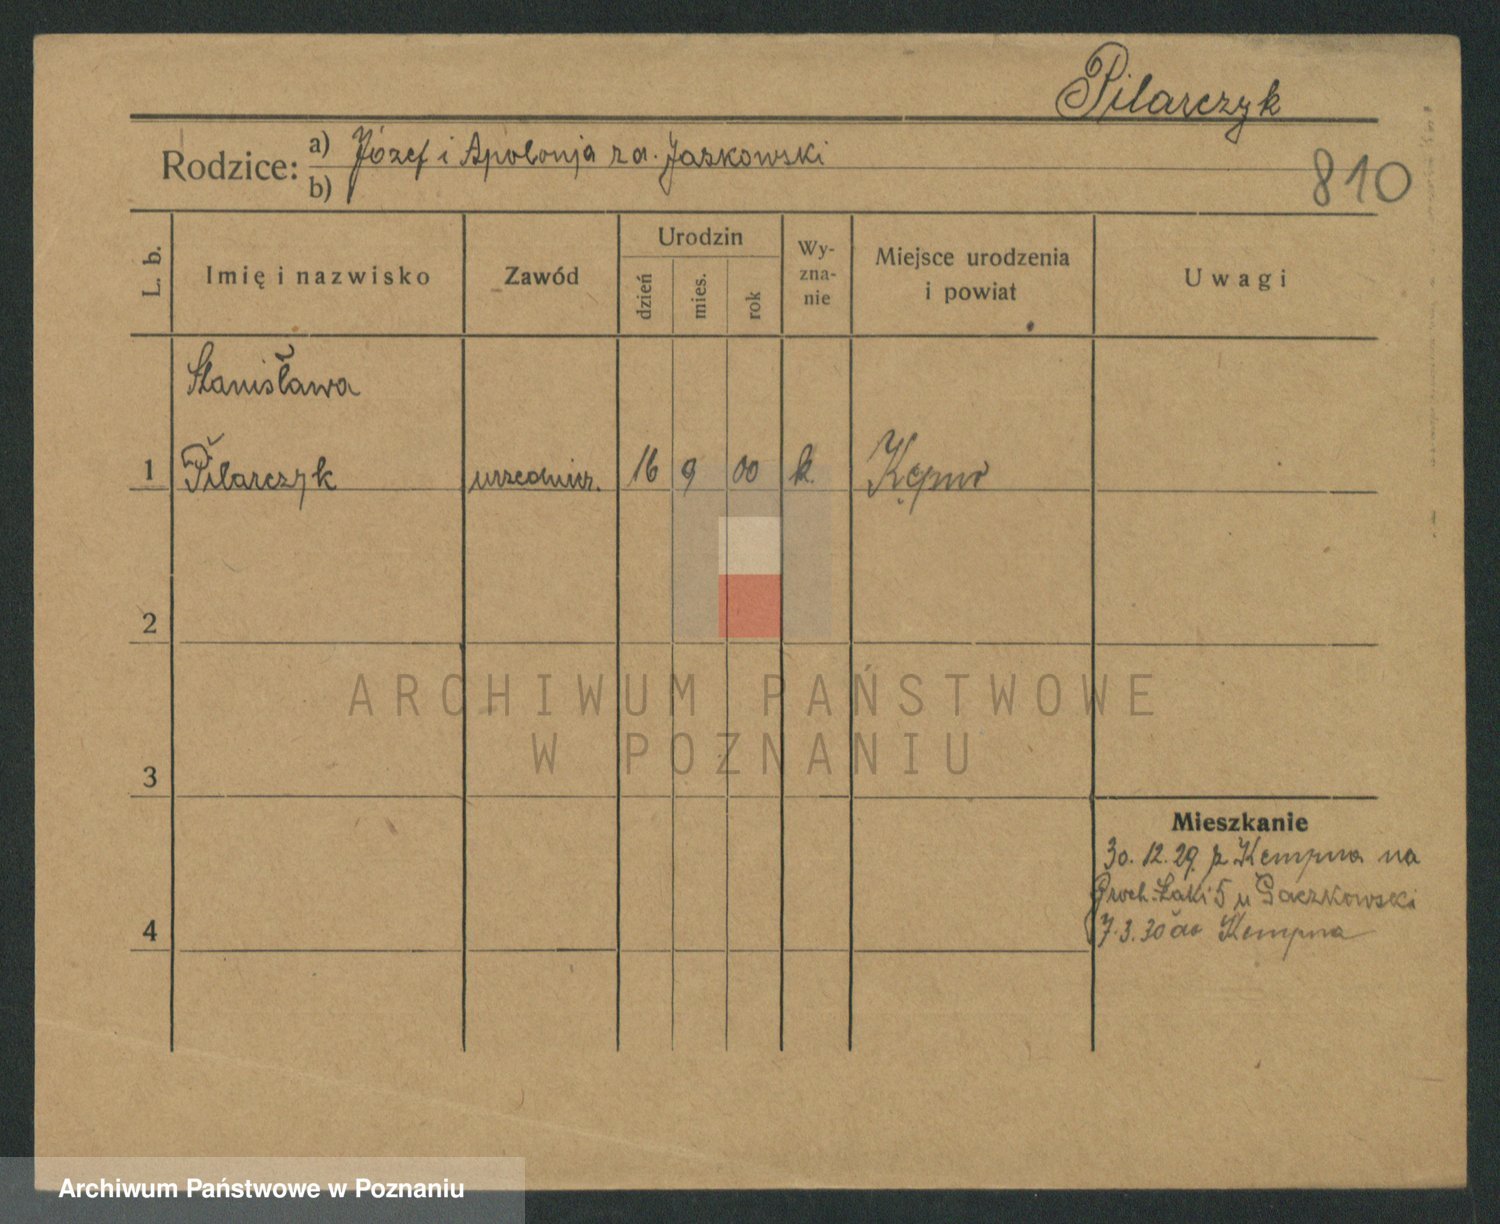 Pilarczyk
Rodzice: a) Józef i Apolonja zd. Jaskowski
b)
810
L. b.
Imię i nazwisko
Zawód
Urodzin
dzień
mies.
rok
Wy-
zna-
nie
Miejsce urodzenia
i powiat
Uwagi
Stanisława
1 Pilarczyk urzednicz. 16 9 00 k. Kępno
2
3
4
ARCHIWUM PAŃSTWOWE
W POZNANIU
Mieszkanie
30.12.29 z Kempna na
Groch. Łąki 5 u Gaczkowski
7.3.30 do Kempna
Archiwum Państwowe w Poznaniu